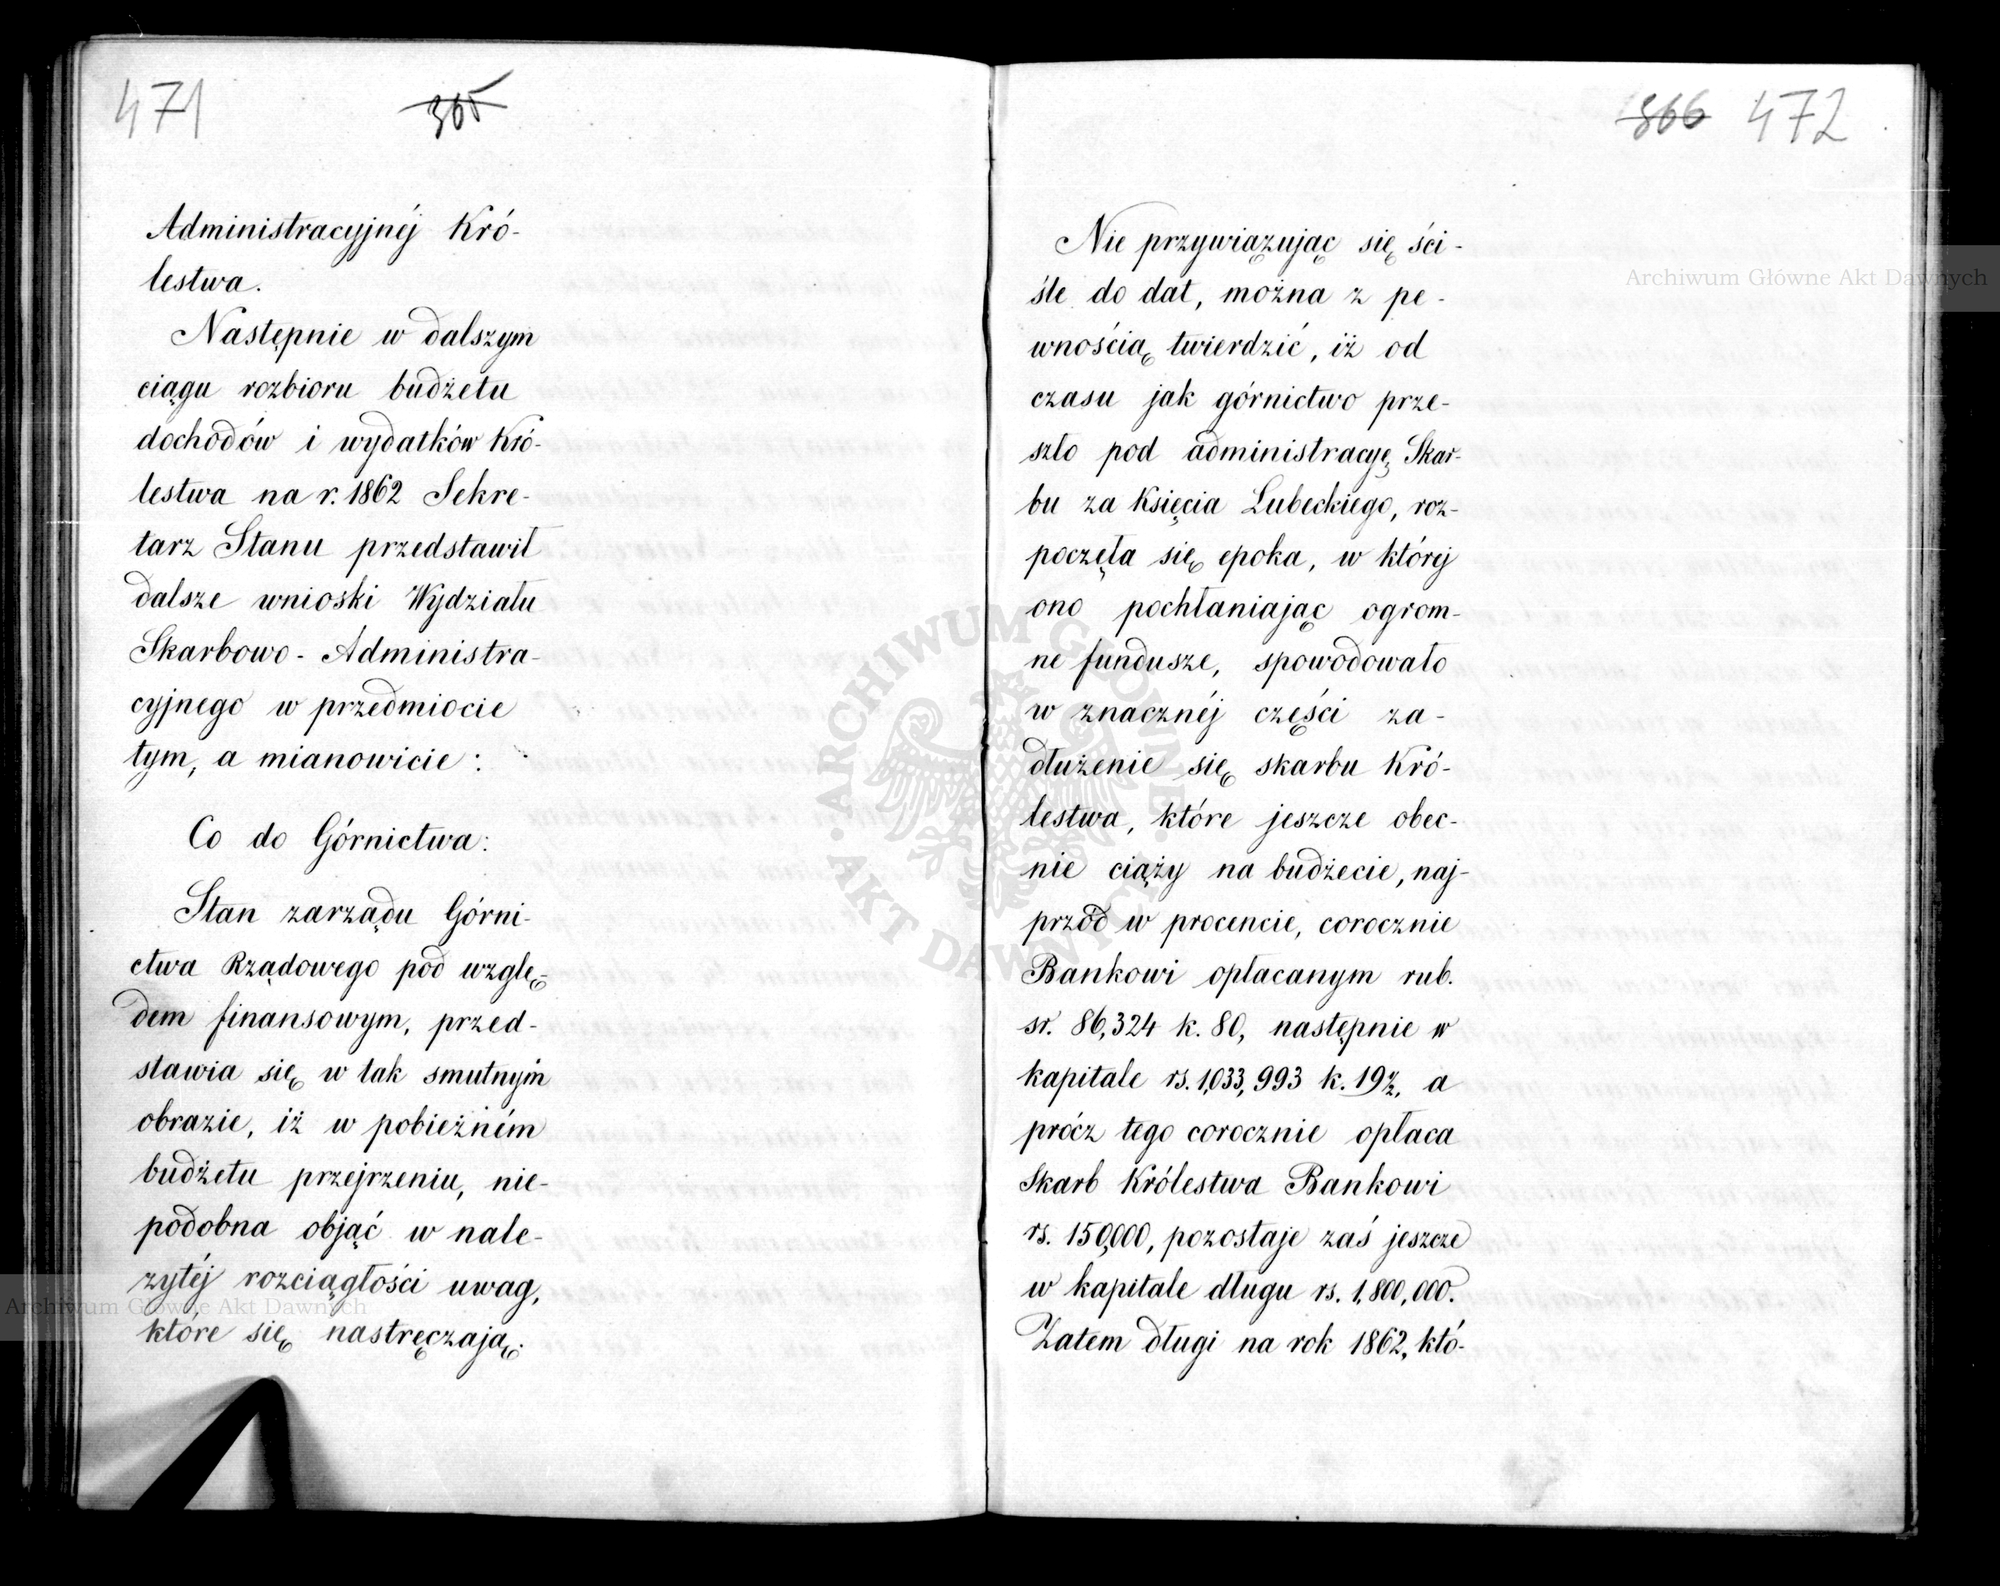 471
365
Administracyjnéj Kró-
lestwa.
Następnie w dalszym
ciągu rozbioru budżetu
dochodów i wydatków Kró-
lestwa na r. 1862 Sekre-
tarz Stanu przedstawił
dalsze wnioski Wydziału
Skarbowo-Administra-
cyjnego w przedmiocie
tym, a mianowicie:
Co do Górnictwa:
Stan zarządu Górni-
ctwa Rządowego pod wzglę-
dem finansowym, przed-
stawia się w tak smutnym
obrazie, iż w pobieżném
budżetu przejrzeniu, nie-
podobna objąć w nale-
zytéj rozciągłości uwag,
które się nastręczają.
366 472
Nie przywiązując się ści-
śle do dat, można z pe-
wnością twierdzić, iż od
czasu jak górnictwo prze-
szło pod administracyę Skar-
bu za Księcia Lubeckiego, roz-
poczęła się epoka, w któréj
ono pochłaniając ogrom-
ne fundusze, spowodowało
w znacznéj części za-
dłużenie się skarbu Kró-
lestwa, które jeszcze obec-
nie ciąży na budżecie, naj-
przód w procencie, corocznie
Bankowi opłacanym rub.
sr. 86,324 k. 80, następnie w
kapitale rs. 1,033,993 k. 19½, a
prócz tego corocznie opłaca
Skarb Królestwa Bankowi
rs. 150,000, pozostaje zaś jeszcze
w kapitale długu rs. 1,800,000.
Zatem długi na rok 1862, któ-
Archiwum Główne Akt Dawnych
Archiwum Główne Akt Dawnych
ARCHIWUM GŁÓWNE
AKT DAWNYCH